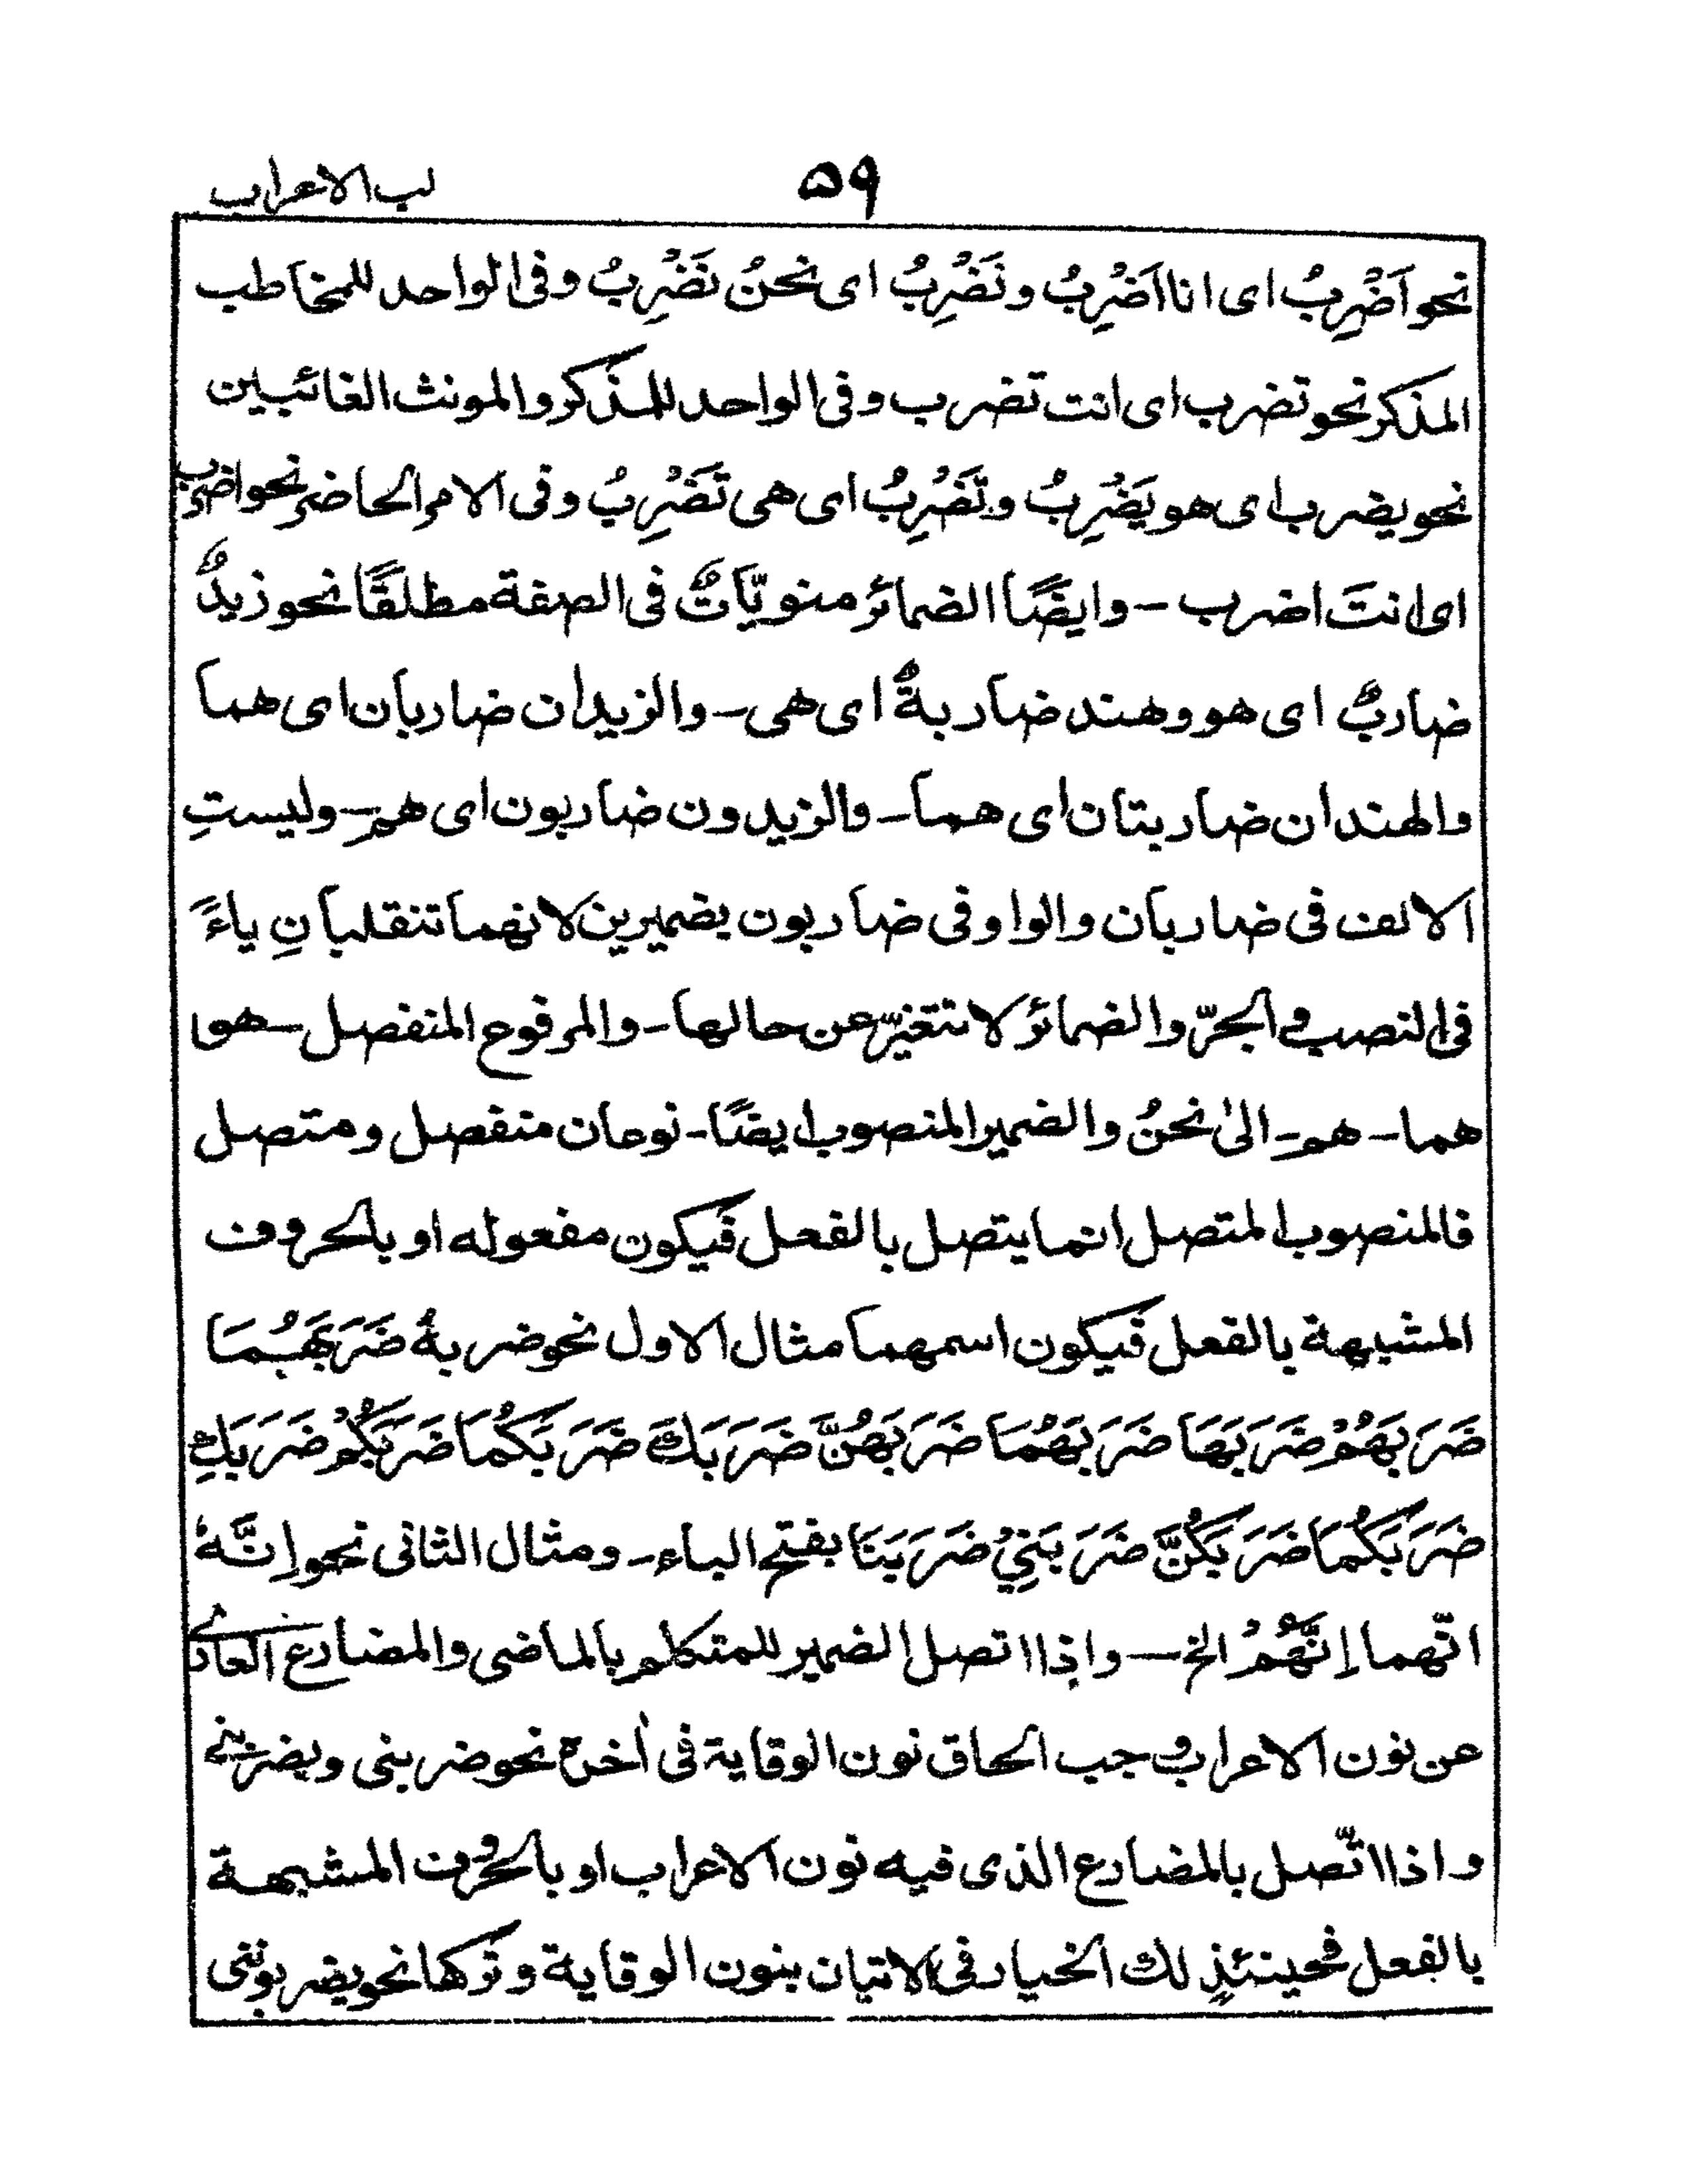 لب الاعراب
۵۹
نحو اَضْرِبُ ای انا اَضْرِبُ و نَضْرِبُ ای نحنُ نَضْرِبُ وفی الواحد للمخاطب
المذکر نحو تضرب ای انت تضرب وفی الواحد للمذکر والمونث الغائبین
نحو یضرب ای هو یَضْرِبُ و تَضْرِبُ ای هی تَضْرِبُ وفی الامر الحاضر نحو اضرب
ای انتَ اضرب – وایضًا الضمائر منویّاتٌ فی الصفة مطلقًا نحو زیدٌ
ضاربٌ ای هو وهند ضاربةٌ ای هی – والزیدان ضاربان ای هما
والهندان ضاربتان ای هما – والزیدون ضاربون ای هم – ولیستِ
الالف فی ضاربان والواو فی ضاربون بضمیرین لانهما تنقلبانِ یاءً
فی النصب و الجرّ والضمائر لا تتغیّر عن حالها – والمرفوع المنفصل – هو
هما – هم – الیٰ نحنُ والضمیر المنصوب ایضًا – نوعان منفصل ومتصل
فالمنصوب المتصل انما یتصل بالفعل فیکون مفعوله او بالحروف
المشبهة بالفعل فیکون اسمهما مثال الاول نحو ضربهٗ ضَرَبَهُمَا
ضَرَبَهُمْ ضَرَبَهَا ضَرَبَهُمَا ضَرَبَهُنَّ ضَرَبَكَ ضَرَبَكُمَا ضَرَبَكُمْ ضَرَبَكِ
ضَرَبَكُمَا ضَرَبَكُنَّ ضَرَبَنِیْ ضَرَبَنَا بفتح الباء – ومثال الثانی نحو اِنَّهٗ
انّهما اِنَّهُمْ الخ – واذا اتصل الضمیر للمتکلم بالماضی والمضارع العاری
عن نون الاعراب وجب الحاق نون الوقایة فی اٰخرہ نحو ضربنی ویضربنی
واذا اتّصل بالمضارع الذی فیه نون الاعراب او بالحروف المشبهة
بالفعل فحینئذٍ لك الخیار فی الاتیان بنون الوقایة وترکها نحو یضربوننی